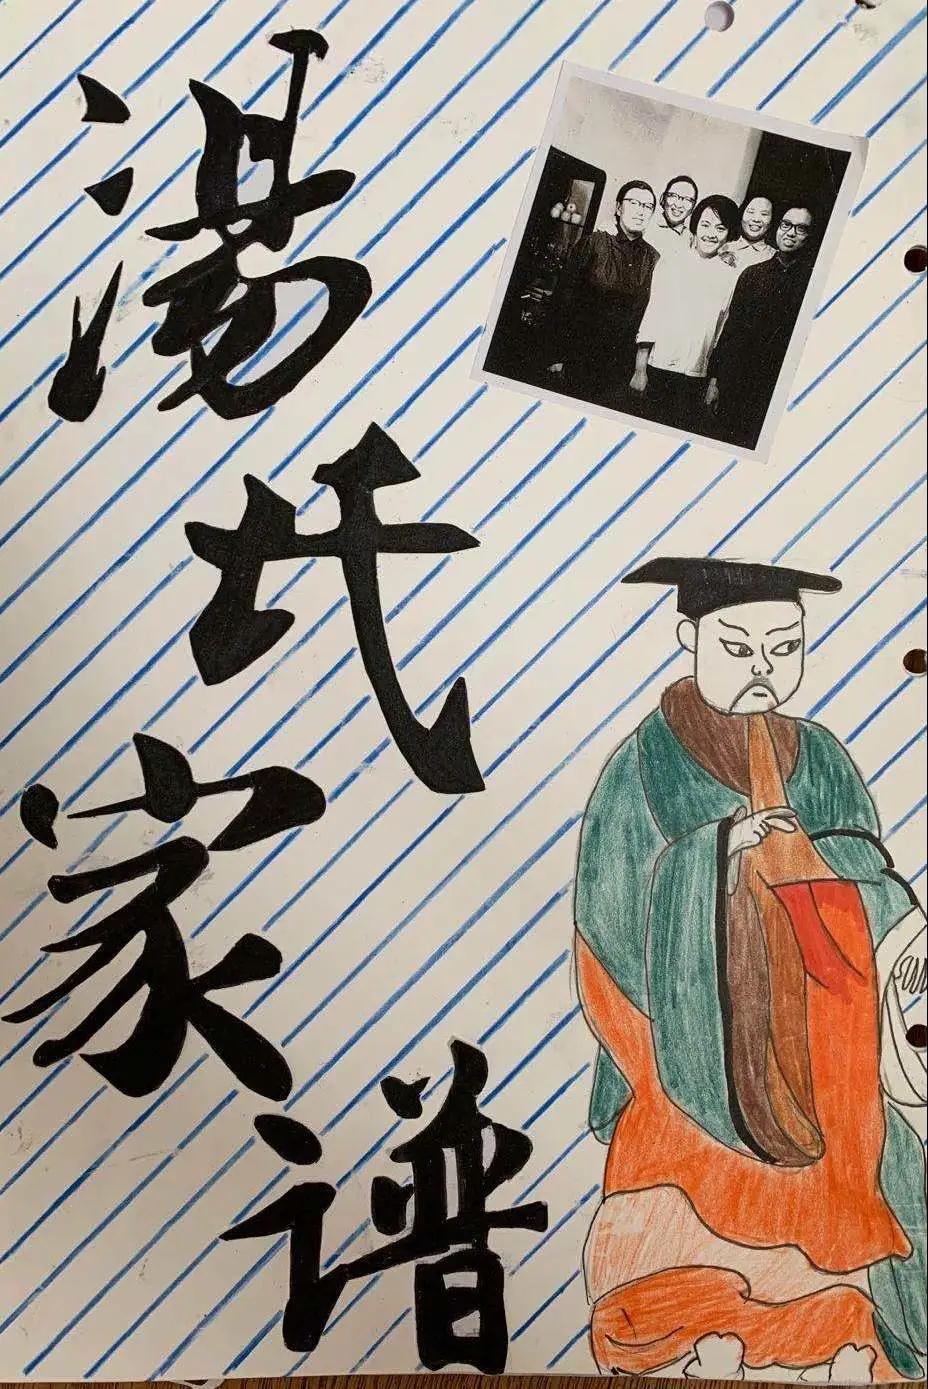 湯
氏
家
谱